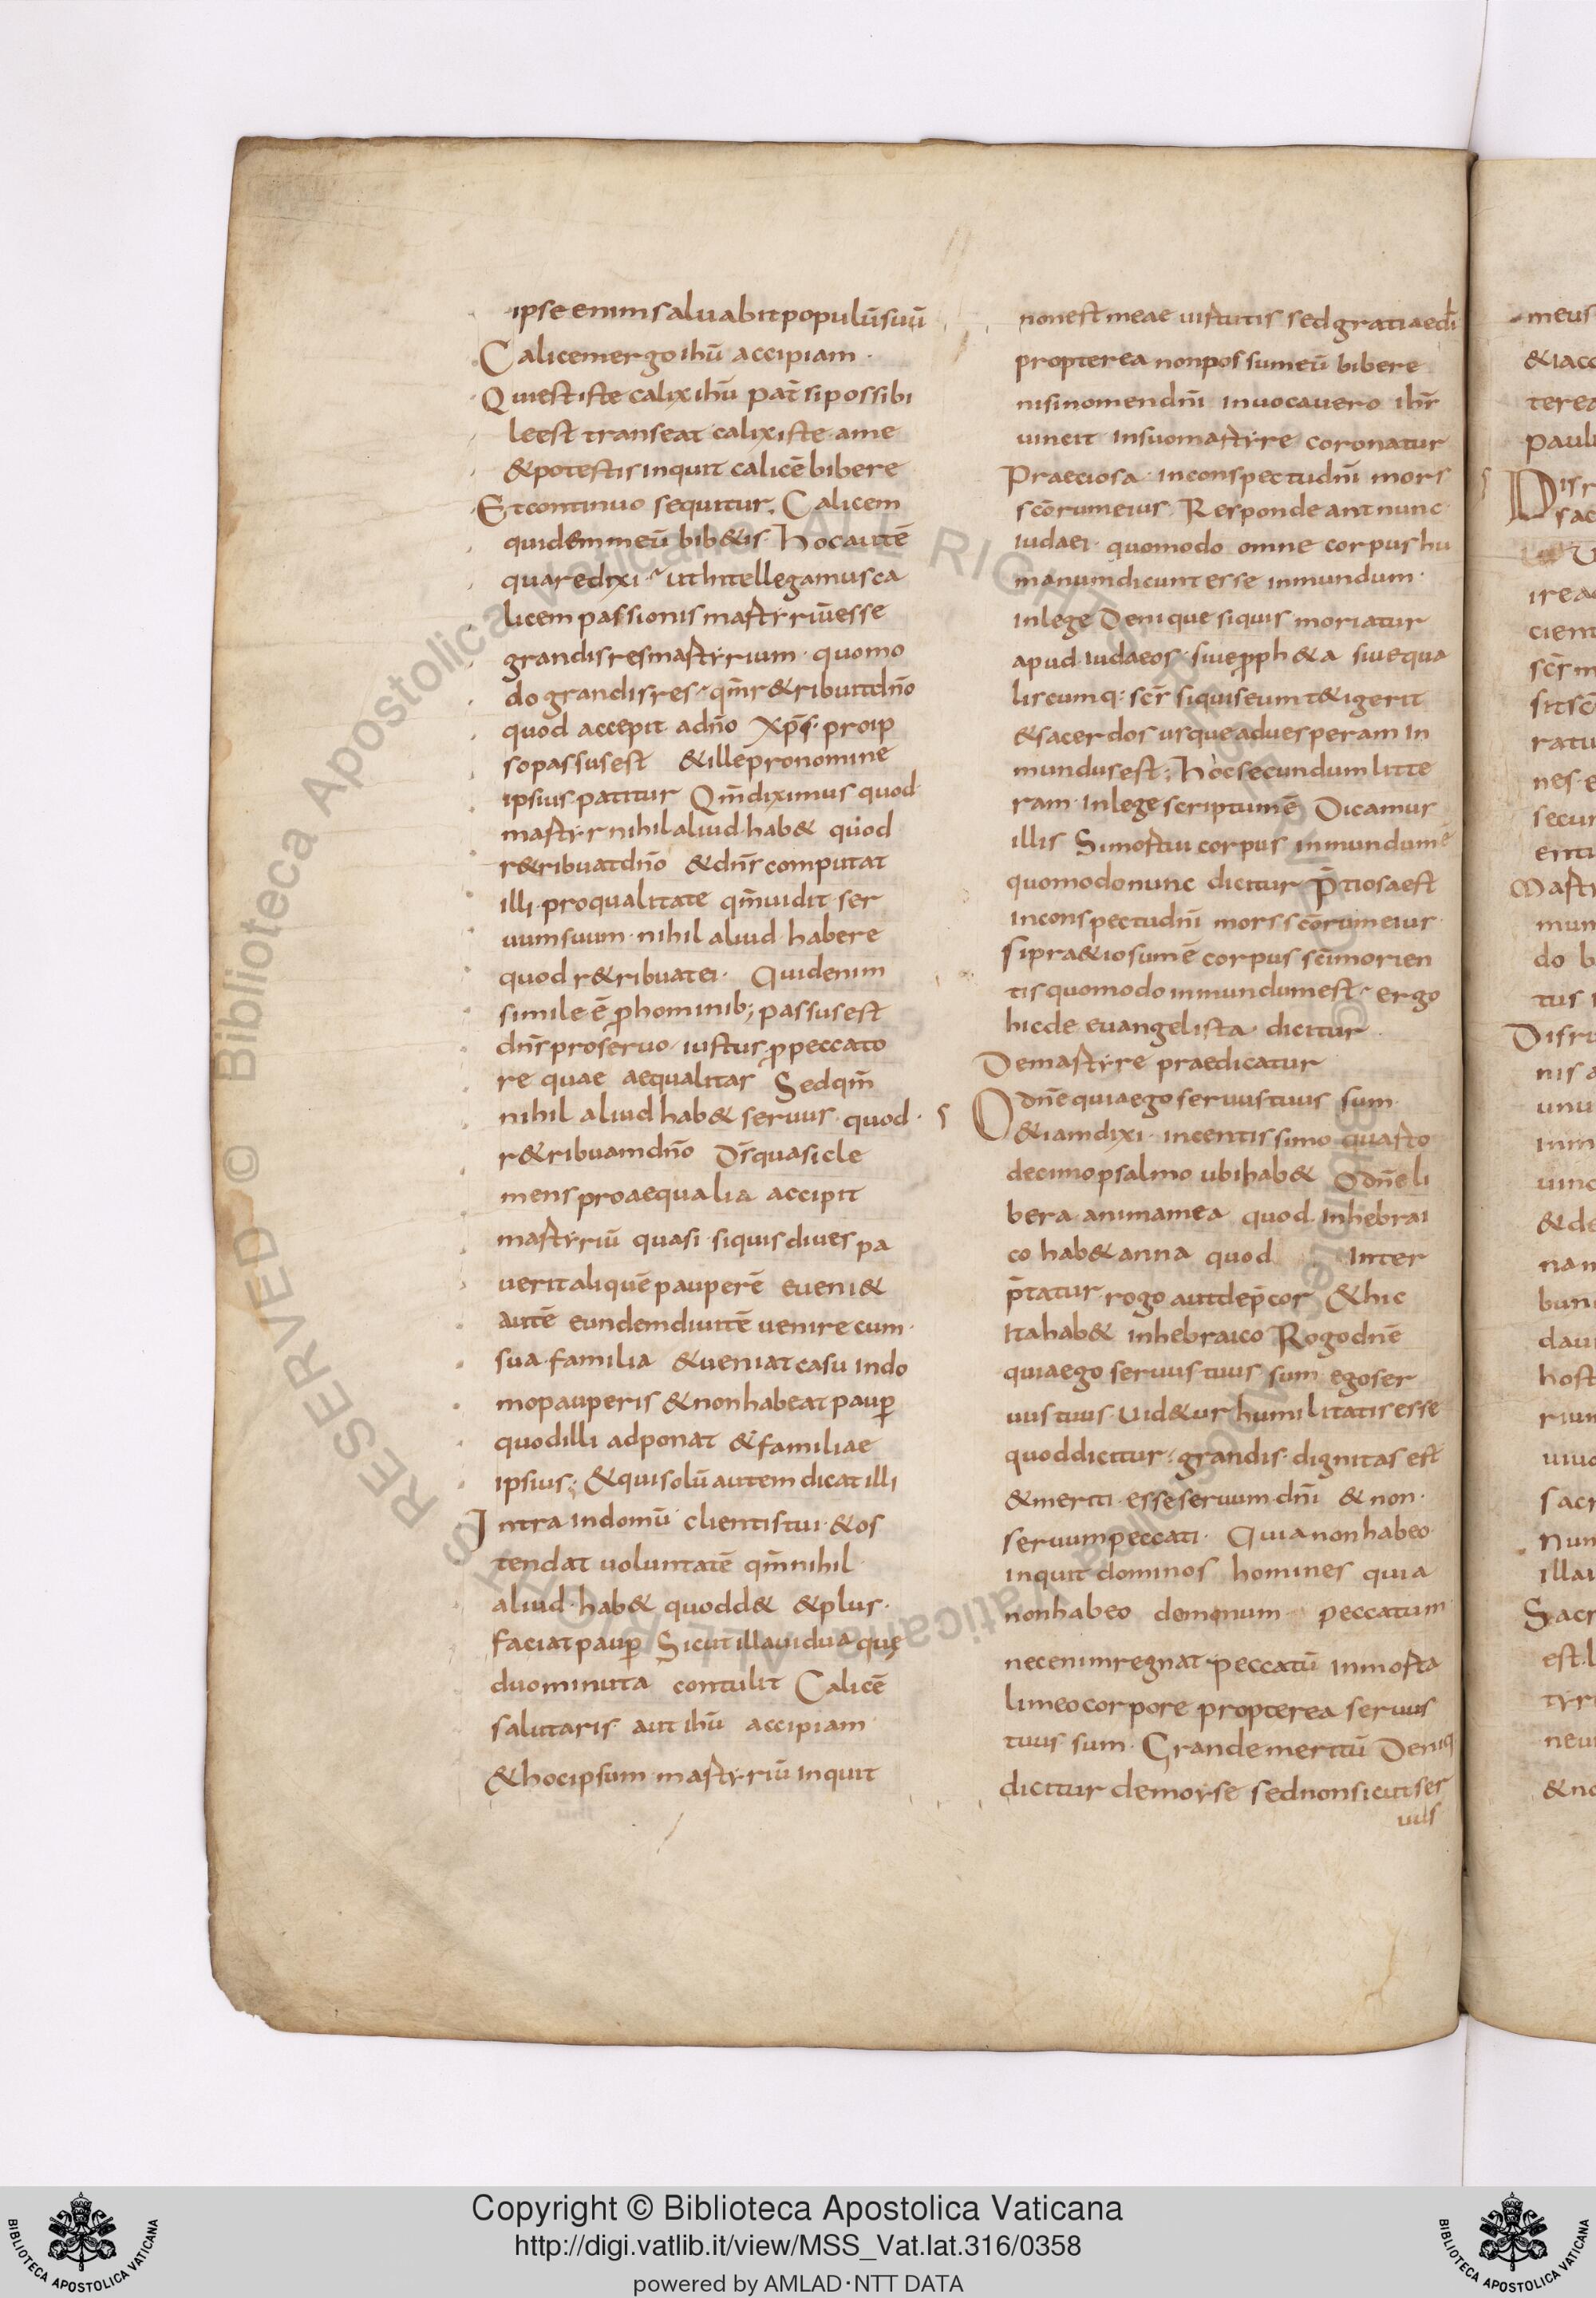 ipse enim saluabit populū suū
Calicem ergo ihū accipiam ·
Qui est iste calix ihū pat̄ si possibi
le est transeat calix iste a me
& potestis inquit calicē bibere
Et continuo sequitur. Calicem
quidem meū bib&is · hoc autē
quare dixi · ut intellegamus ca
licem passionis martyriū esse
grandis res martyrium · quomo
do grandis res · qm̄ r&ribuit dn̄o
quod accepit a dn̄o xp̄s · pro ip
so passus est & ille pro nomine
ipsius patitur Qm̄ diximus quod
martyr nihil aliud hab& quod
r&ribuat dn̄o & dn̄s computat
illi pro qualitate qm̄ uidit ser
uum suum · nihil aliud habere
quod r&ribuat ei · Quid enim
simile ē ꝓ hominib; passus est
dn̄s pro seruo iustus ꝓ peccato
re quae aequalitas Sed qm̄
nihil aliud hab& seruus quod ·
r&ribuam dn̄o Ds̄ quasi cle
mens pro aequalia accipit
martyriū quasi si quis diues pa
uerit aliquē pauperē eueni&
autē eundem diuitē uenire cum ·
sua familia & ueniat casu in do
mo pauperis & non habeat paup̄
quod illi adponat & familiae
ipsius ; & qui solū autem dicat illi
Intra in domū clientis tui · & os
tendat uoluntatē qm̄ nihil
aliud hab& quod d& & plus ·
faciat paup̄ Sicut illa uidua quę
duo minuta contulit Calicē
salutaris aut ihū accipiam
& hoc ipsum martyriū inquit
non est meae uirtutis sed gratiae dī
propterea non possum eū bibere
nisi nomen dn̄i inuocauero ihs̄
uincit in suo martyre coronatur
Praeciosa in conspectu dn̄i mors
sc̄orum eius Respondeant nunc
iudaei · quomodo omne corpus hu
manum dicunt esse inmundum ·
in lege Denique si quis moriatur
apud iudaeos · siue ꝓph&a siue qua
liscumq; sc̄s si quis eum t&igerit
& sacerdos usque ad uesperam in
mundus est ; hoc secundum litte
ram in lege scriptum ē Dicamus
illis Si mortui corpus inmundum ē
quomodo nunc dicitur p̄tiosa est
in conspectu dn̄i mors sc̄orum eius
si pra&iosum ē corpus sc̄i morien
tis quomodo inmundum est · ergo
hic de euangelista dicitur
De martyre praedicatur
O dn̄e quia ego seruus tuus sum ·
& iam dixi · in centissimo quarto
decimo psalmo ubi hab& O dn̄e li
bera anima mea quod in hebrai
co hab& anna quod inter
p̄tatur rogo aut dep̄cor & hic
ita hab& in hebraico Rogo dn̄e
quia ego seruus tuus sum ego ser
uus tuus Uid&ur humilitatis esse
quod dicitur · grandis dignitas est
& meriti esse seruum dn̄i & non ·
seruum peccati · Quia non habeo
inquit dominos homines quia
non habeo domonum peccatum
nec enim regnat peccatū in morta
li meo corpore propterea seruus
tuus sum · Grande meritū Deniq
dicitur de moyse sed non sicut ser
uus
Copyright © Biblioteca Apostolica Vaticana
http://digi.vatlib.it/view/MSS_Vat.lat.316/0358
powered by AMLAD·NTT DATA